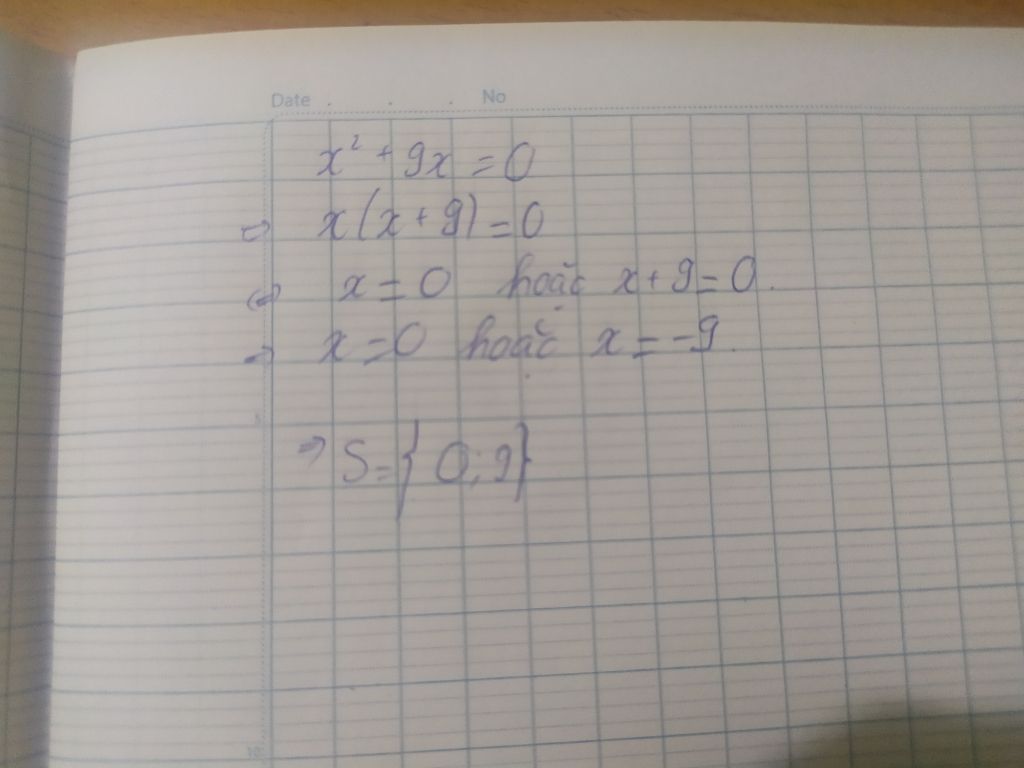 Date . . . No
x² + 9x = 0
⇔ x(x + 9) = 0
⇔ x = 0 hoặc x + 9 = 0.
⇔ x = 0 hoặc x = -9.
5
⇒ S = { 0; 9}
10